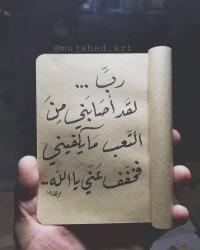 @mujahed.art
ربِّ ...
لقد أصَابَني مِنَ
التعب مَا يكفيني
فخفِّف عَنّي يا اللّٰه ..